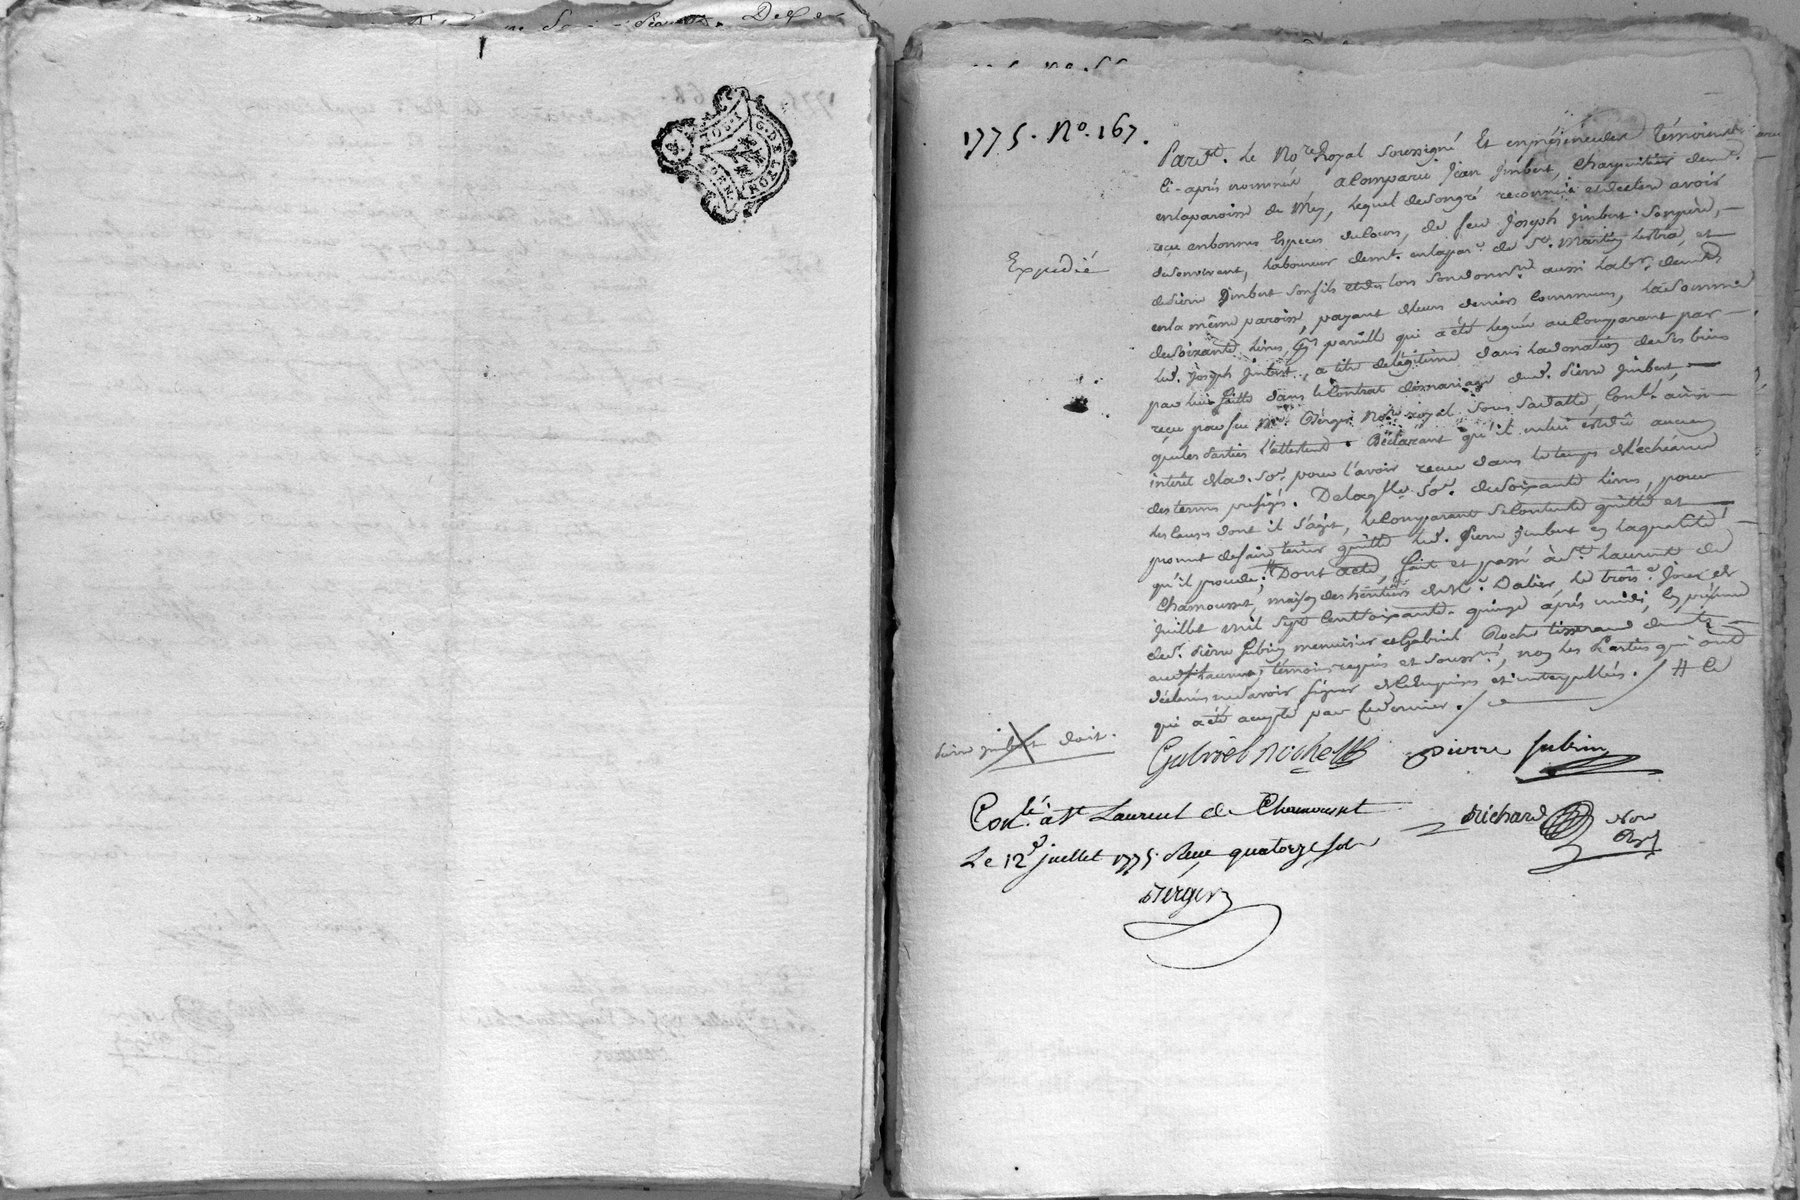 1775. No. 167.
Pardt. le Nore Royal soussigné Et en présence des témoins
ci-après nommés, a comparu Jean Jimbert, Charpentier demt.
en la paroisse de Mey, lequel de son gré reconnu et declaré avoir
reçu en bonnes Especes de cours, de feu Joseph Jimbert son père,
de son vivant, laboureur demt. en la par. de St. Martin lestra, et
Expedié
de Pierre Jimbert son fils et des lors son donre. aussi labr. demt.
en la même paroisse, payant de leurs deniers communs, la somme
de soixante livres, pareille qui a été leguée au Comparant par
led. Joseph Jimbert, a titre de légitime dans la donation de ses biens
par lui faitte dans le Contrat de mariage dud. Pierre Jimbert,
reçu par feu Me. Nore. royal sous sa datte, Contlé. ainsi
que les Parties l'attestent. Déclarant qu'il ne lui est dû aucun
intérêt de lad. so. pour l'avoir reçue dans le temps de l'échéance
des termes prefigés. De laqlle. so. de soixante livres, pour
les causes dont il s'agit, le Comparant se Contente quitte et
promet de faire tenir quitte led. Pierre Jimbert en la qualité
qu'il procede; # Dont acte, fait et passé à St. Laurent de
Chamousset, maison des héritiers de Dalier, le troise. jour de
juillet mil sept Cent soixante-quinze après midi, En présence
de s. Pierre Jubin menuisier et Gabriel Roche tisserand demts.
aud. St Laurent, témoins requis et soussés, non les Parties qui ont
déclaré ne savoir signer de ce Enquises et interpellées. / # Ce
qui a été accepté par ce dernier. /
Pierre Jimbert doit.
Gabriel Roche Pierre Jubin
Conlé. à St Laurent de Chamousset
Richard Nore Royl
Le 12e juillet 1775. Reçu quatorze sols